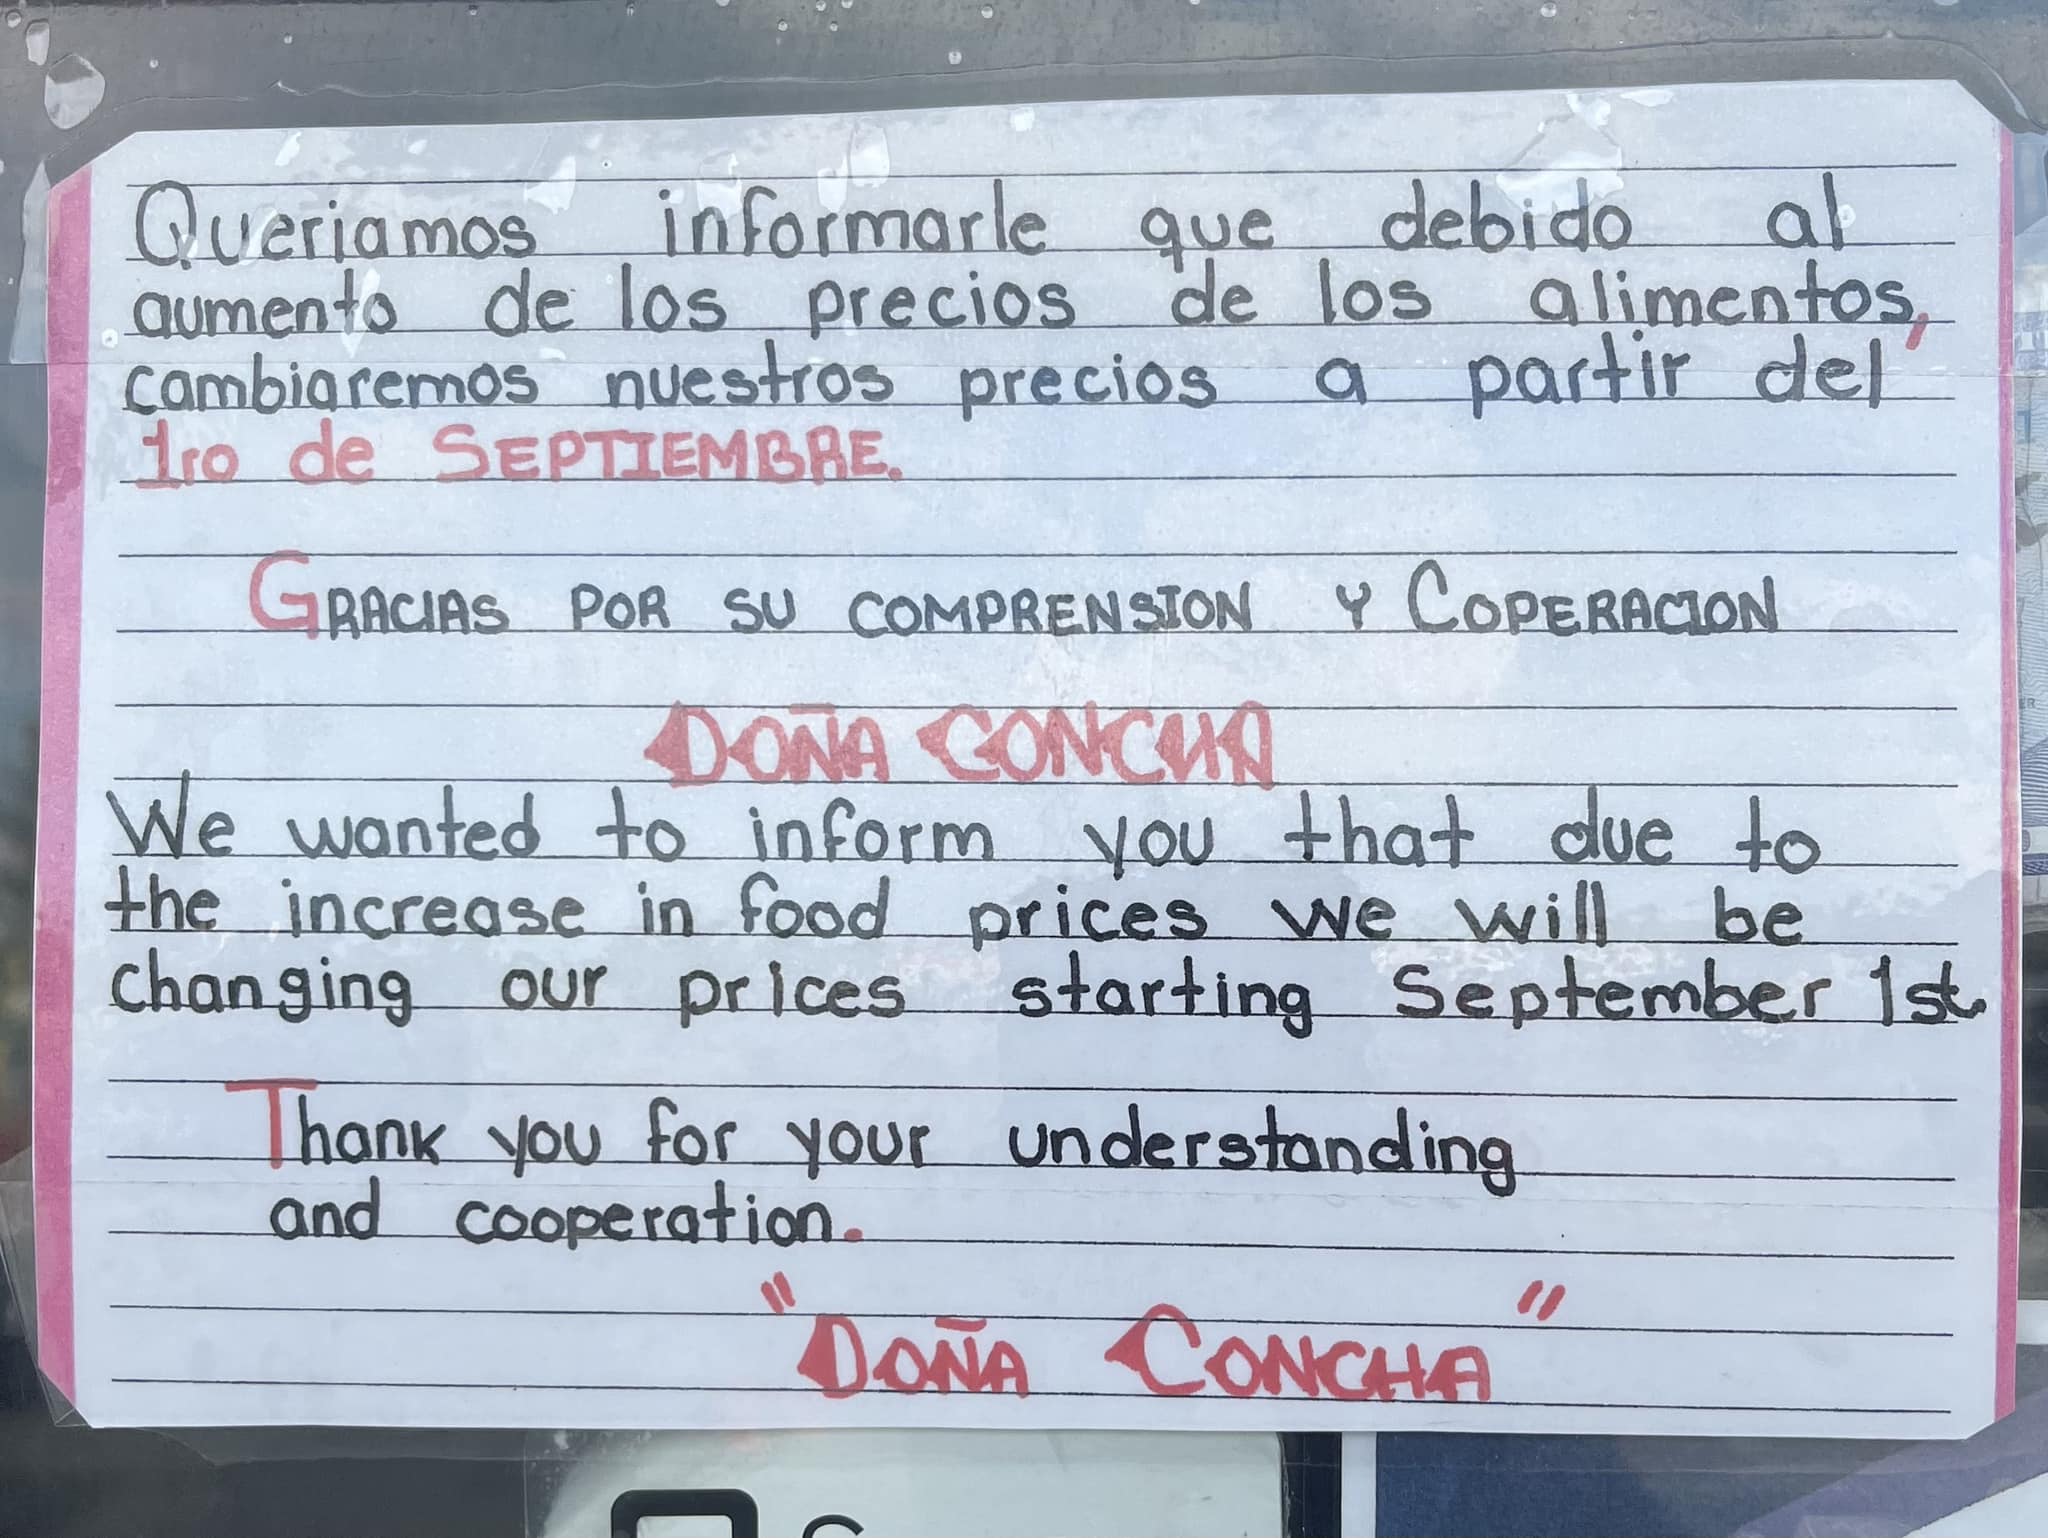 Queriamos informarle que debido al
aumento de los precios de los alimentos,
cambiaremos nuestros precios a partir del
1ro de SEPTIEMBRE.
GRACIAS POR SU COMPRENSION Y COPERACION
DOÑA CONCHA
We wanted to inform you that due to
the increase in food prices we will be
changing our prices starting September 1st.
Thank you for your understanding
and cooperation.
"DOÑA CONCHA"